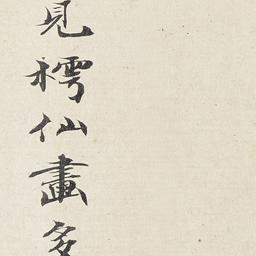 見樗仙畫多